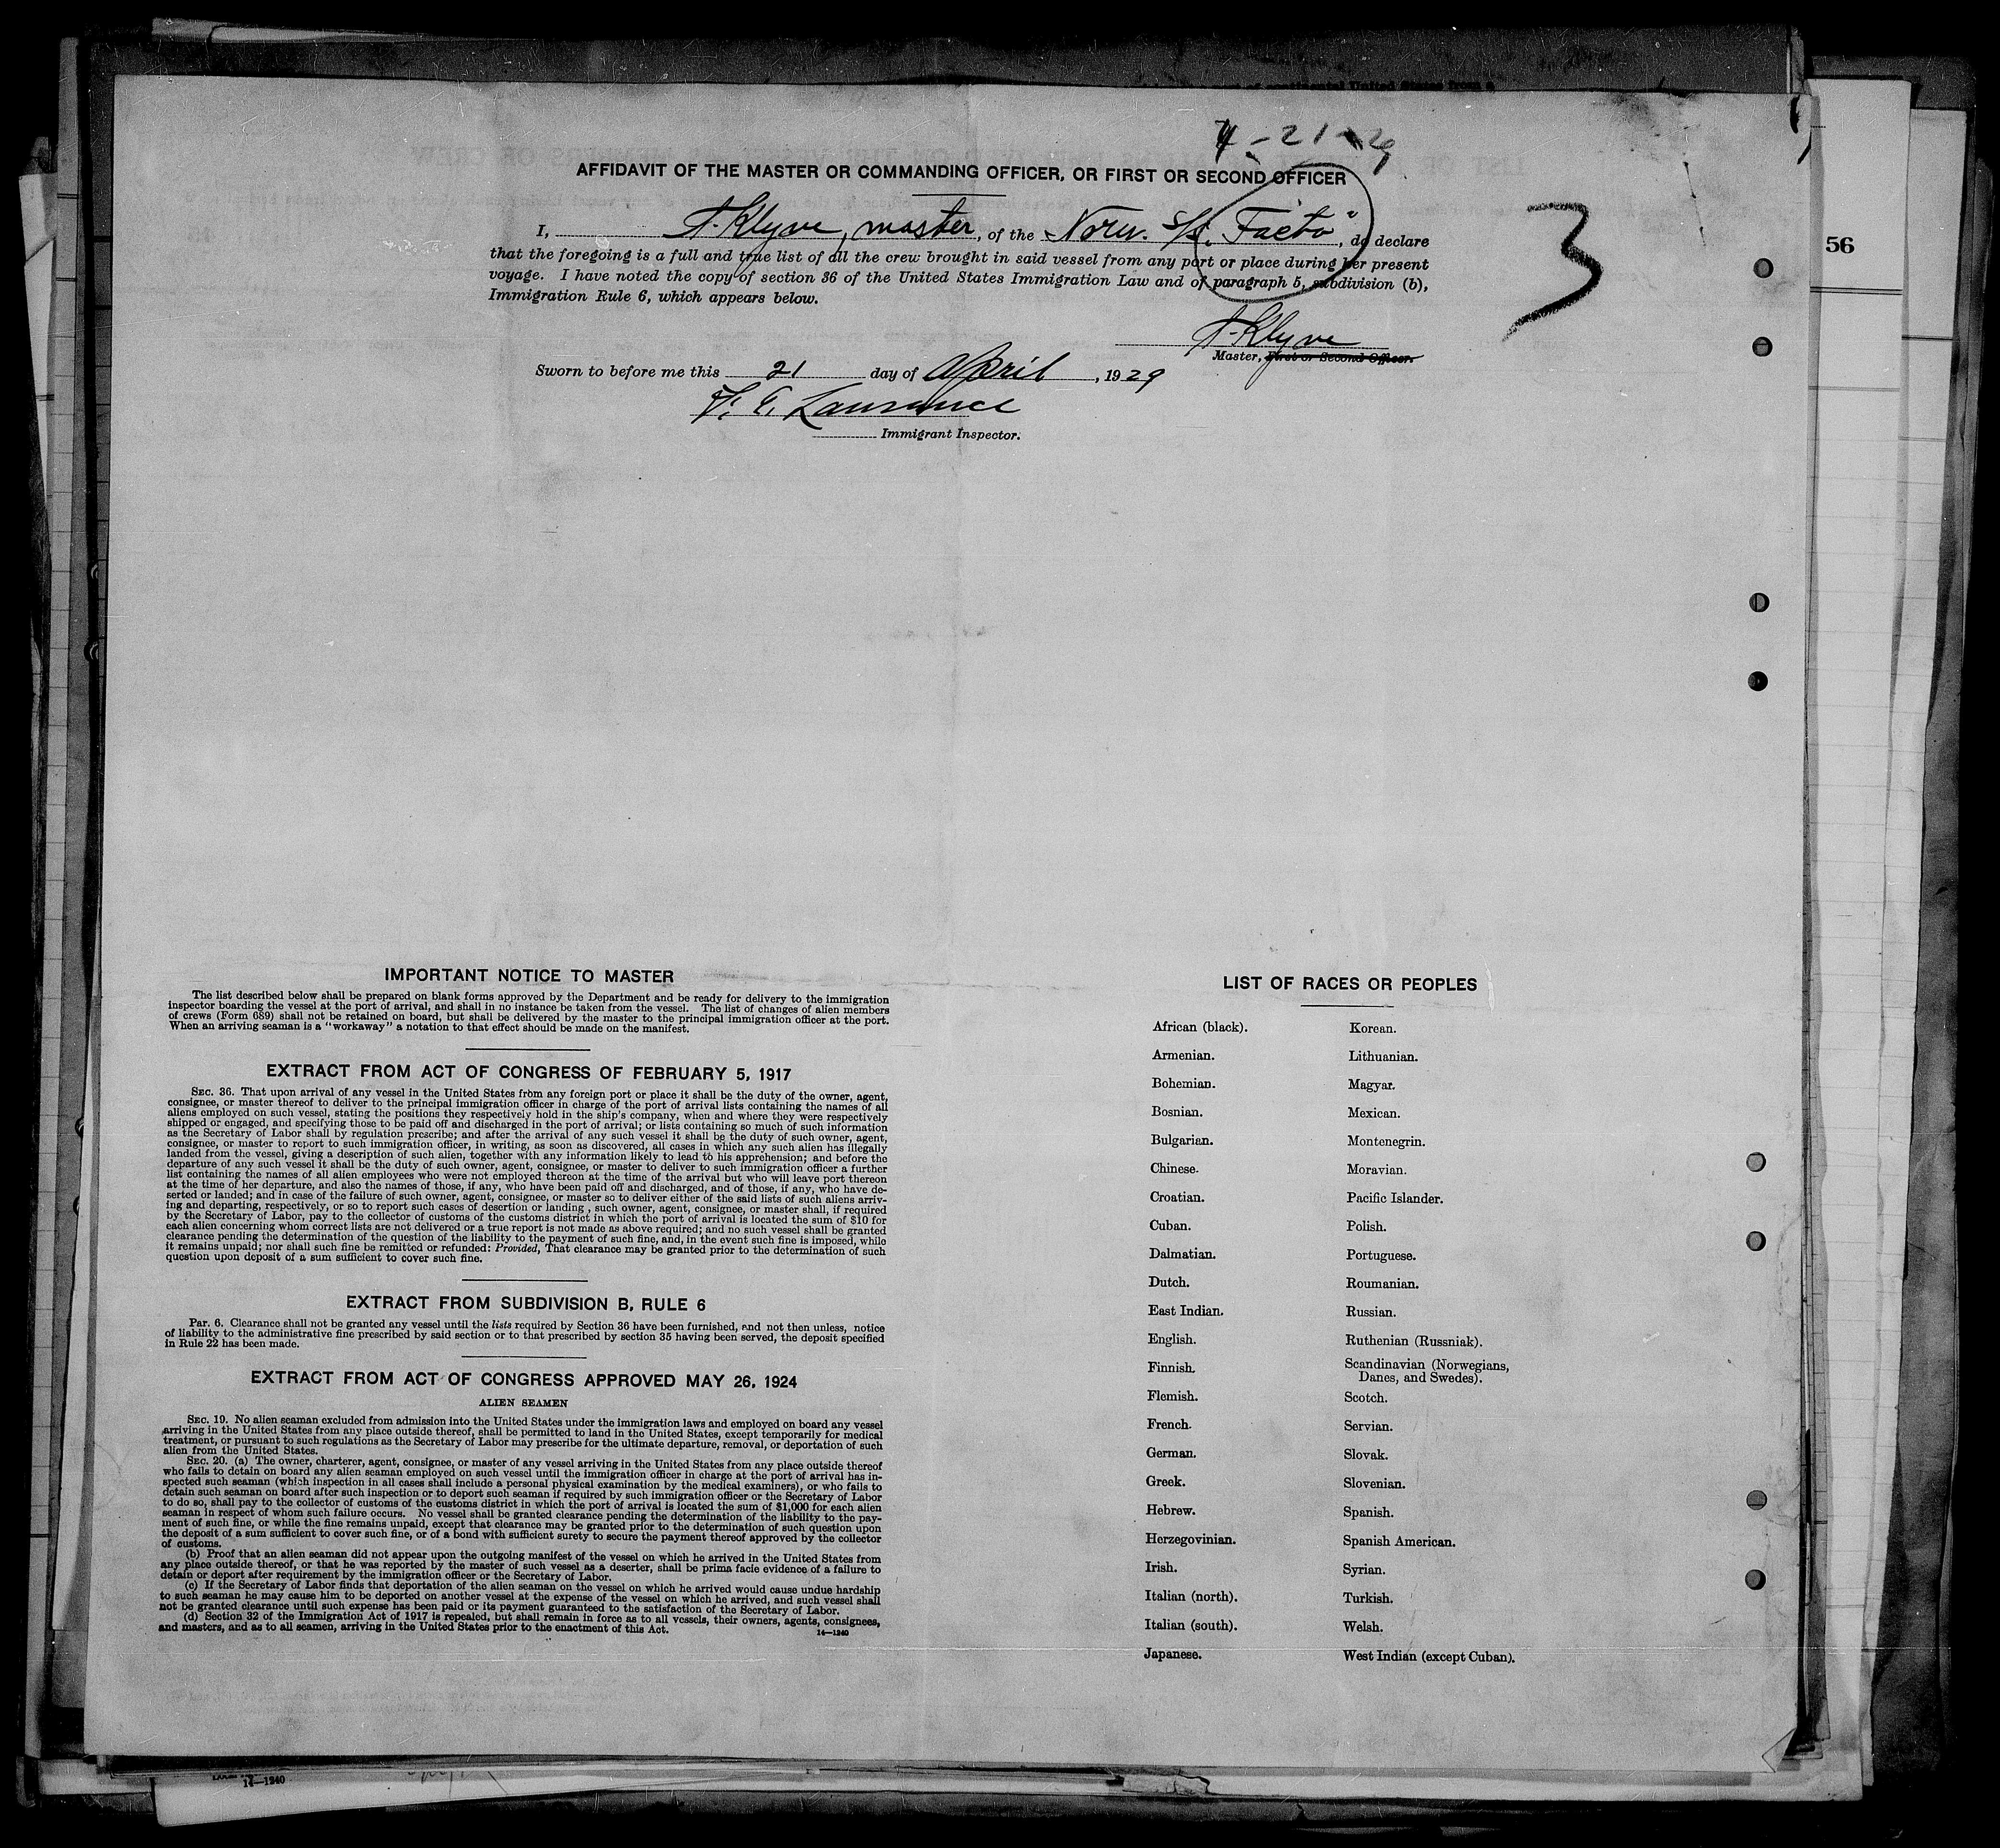 4-21-29
AFFIDAVIT OF THE MASTER OR COMMANDING OFFICER, OR FIRST OR SECOND OFFICER
I, A. Klyve, master, of the Norw. S/S. "Facto", do declare
that the foregoing is a full and true list of all the crew brought in said vessel from any port or place during her present
voyage. I have noted the copy of section 36 of the United States Immigration Law and of paragraph 5, subdivision (b),
Immigration Rule 6, which appears below.
3
56
A. Klyve
Master, First or Second Officer.
Sworn to before me this 21 day of April, 1929
Lawrence
Immigrant Inspector.
IMPORTANT NOTICE TO MASTER
The list described below shall be prepared on blank forms approved by the Department and be ready for delivery to the immigration
inspector boarding the vessel at the port of arrival, and shall in no instance be taken from the vessel. The list of changes of alien members
of crews (Form 689) shall not be retained on board, but shall be delivered by the master to the principal immigration officer at the port.
When an arriving seaman is a "workaway" a notation to that effect should be made on the manifest.
EXTRACT FROM ACT OF CONGRESS OF FEBRUARY 5, 1917
SEC. 36. That upon arrival of any vessel in the United States from any foreign port or place it shall be the duty of the owner, agent,
consignee, or master thereof to deliver to the principal immigration officer in charge of the port of arrival lists containing the names of all
aliens employed on such vessel, stating the positions they respectively hold in the ship's company, when and where they were respectively
shipped or engaged, and specifying those to be paid off and discharged in the port of arrival; or lists containing so much of such information
as the Secretary of Labor shall by regulation prescribe; and after the arrival of any such vessel it shall be the duty of such owner, agent,
consignee, or master to report to such immigration officer, in writing, as soon as discovered, all cases in which any such alien has illegally
landed from the vessel, giving a description of such alien, together with any information likely to lead to his apprehension; and before the
departure of any such vessel it shall be the duty of such owner, agent, consignee, or master to deliver to such immigration officer a further
list containing the names of all alien employees who were not employed thereon at the time of the arrival but who will leave port thereon
at the time of her departure, and also the names of those, if any, who have been paid off and discharged, and of those, if any, who have de-
serted or landed; and in case of the failure of such owner, agent, consignee, or master so to deliver either of the said lists of such aliens arriv-
ing and departing, respectively, or so to report such cases of desertion or landing, such owner, agent, consignee, or master shall, if required
by the Secretary of Labor, pay to the collector of customs of the customs district in which the port of arrival is located the sum of $10 for
each alien concerning whom correct lists are not delivered or a true report is not made as above required; and no such vessel shall be granted
clearance pending the determination of the question of the liability to the payment of such fine, and, in the event such fine is imposed, while
it remains unpaid; nor shall such fine be remitted or refunded: Provided, That clearance may be granted prior to the determination of such
question upon deposit of a sum sufficient to cover such fine.
EXTRACT FROM SUBDIVISION B, RULE 6
Par. 6. Clearance shall not be granted any vessel until the lists required by Section 36 have been furnished, and not then unless, notice
of liability to the administrative fine prescribed by said section or to that prescribed by section 35 having been served, the deposit specified
in Rule 22 has been made.
EXTRACT FROM ACT OF CONGRESS APPROVED MAY 26, 1924
ALIEN SEAMEN
SEC. 19. No alien seaman excluded from admission into the United States under the immigration laws and employed on board any vessel
arriving in the United States from any place outside thereof, shall be permitted to land in the United States, except temporarily for medical
treatment, or pursuant to such regulations as the Secretary of Labor may prescribe for the ultimate departure, removal, or deportation of such
alien from the United States.
SEC. 20. (a) The owner, charterer, agent, consignee, or master of any vessel arriving in the United States from any place outside thereof
who fails to detain on board any alien seaman employed on such vessel until the immigration officer in charge at the port of arrival has in-
spected such seaman (which inspection in all cases shall include a personal physical examination by the medical examiners), or who fails to
detain such seaman on board after such inspection or to deport such seaman if required by such immigration officer or the Secretary of Labor
to do so, shall pay to the collector of customs of the customs district in which the port of arrival is located the sum of $1,000 for each alien
seaman in respect of whom such failure occurs. No vessel shall be granted clearance pending the determination of the liability to the pay-
ment of such fine, or while the fine remains unpaid, except that clearance may be granted prior to the determination of such question upon
the deposit of a sum sufficient to cover such fine, or of a bond with sufficient surety to secure the payment thereof approved by the collector
of customs.
(b) Proof that an alien seaman did not appear upon the outgoing manifest of the vessel on which he arrived in the United States from
any place outside thereof, or that he was reported by the master of such vessel as a deserter, shall be prima facie evidence of a failure to
detain or deport after requirement by the immigration officer or the Secretary of Labor.
(c) If the Secretary of Labor finds that deportation of the alien seaman on the vessel on which he arrived would cause undue hardship
to such seaman he may cause him to be deported on another vessel at the expense of the vessel on which he arrived, and such vessel shall
not be granted clearance until such expense has been paid or its payment guaranteed to the satisfaction of the Secretary of Labor.
(d) Section 32 of the Immigration Act of 1917 is repealed, but shall remain in force as to all vessels, their owners, agents, consignees,
and masters, and as to all seamen, arriving in the United States prior to the enactment of this Act.
14—1240
LIST OF RACES OR PEOPLES
African (black).
Armenian.
Bohemian.
Bosnian.
Bulgarian.
Chinese.
Croatian.
Cuban.
Dalmatian.
Dutch.
East Indian.
English.
Finnish.
Flemish.
French.
German.
Greek.
Hebrew.
Herzegovinian.
Irish.
Italian (north).
Italian (south).
Japanese.
Korean.
Lithuanian.
Magyar.
Mexican.
Montenegrin.
Moravian.
Pacific Islander.
Polish.
Portuguese.
Roumanian.
Russian.
Ruthenian (Russniak).
Scandinavian (Norwegians,
Danes, and Swedes).
Scotch.
Servian.
Slovak.
Slovenian.
Spanish.
Spanish American.
Syrian.
Turkish.
Welsh.
West Indian (except Cuban).
14—1240